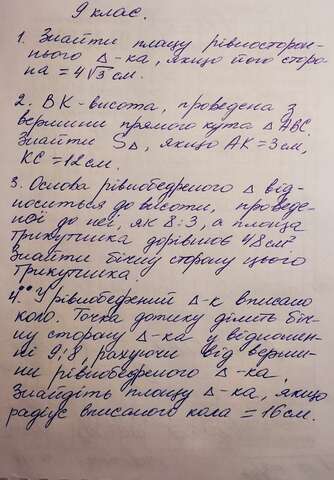 9 клас.
1. Знайти площу рівносторон-
нього Δ-ка, якщо його сторо-
на = 4√3 см.
2. BK-висота, проведена з
вершини прямого кута Δ ABC.
Знайти SΔ, якщо AK = 3см,
KC = 12см.
3. Основа рівнобедреного Δ від-
носиться до висоти, проведе-
ної до неї, як 8:3, а площа
трикутника дорівнює 48 см²
Знайти бічну сторону цього
трикутника.
4.** У рівнобедрений Δ-к вписано
коло. Точка дотику ділить біч-
ну сторону Δ-ка у відношен-
ні 9:8, рахуючи від верши-
ни рівнобедреного Δ-ка.
Знайдіть площу Δ-ка, якщо
радіус вписаного кола = 16см.